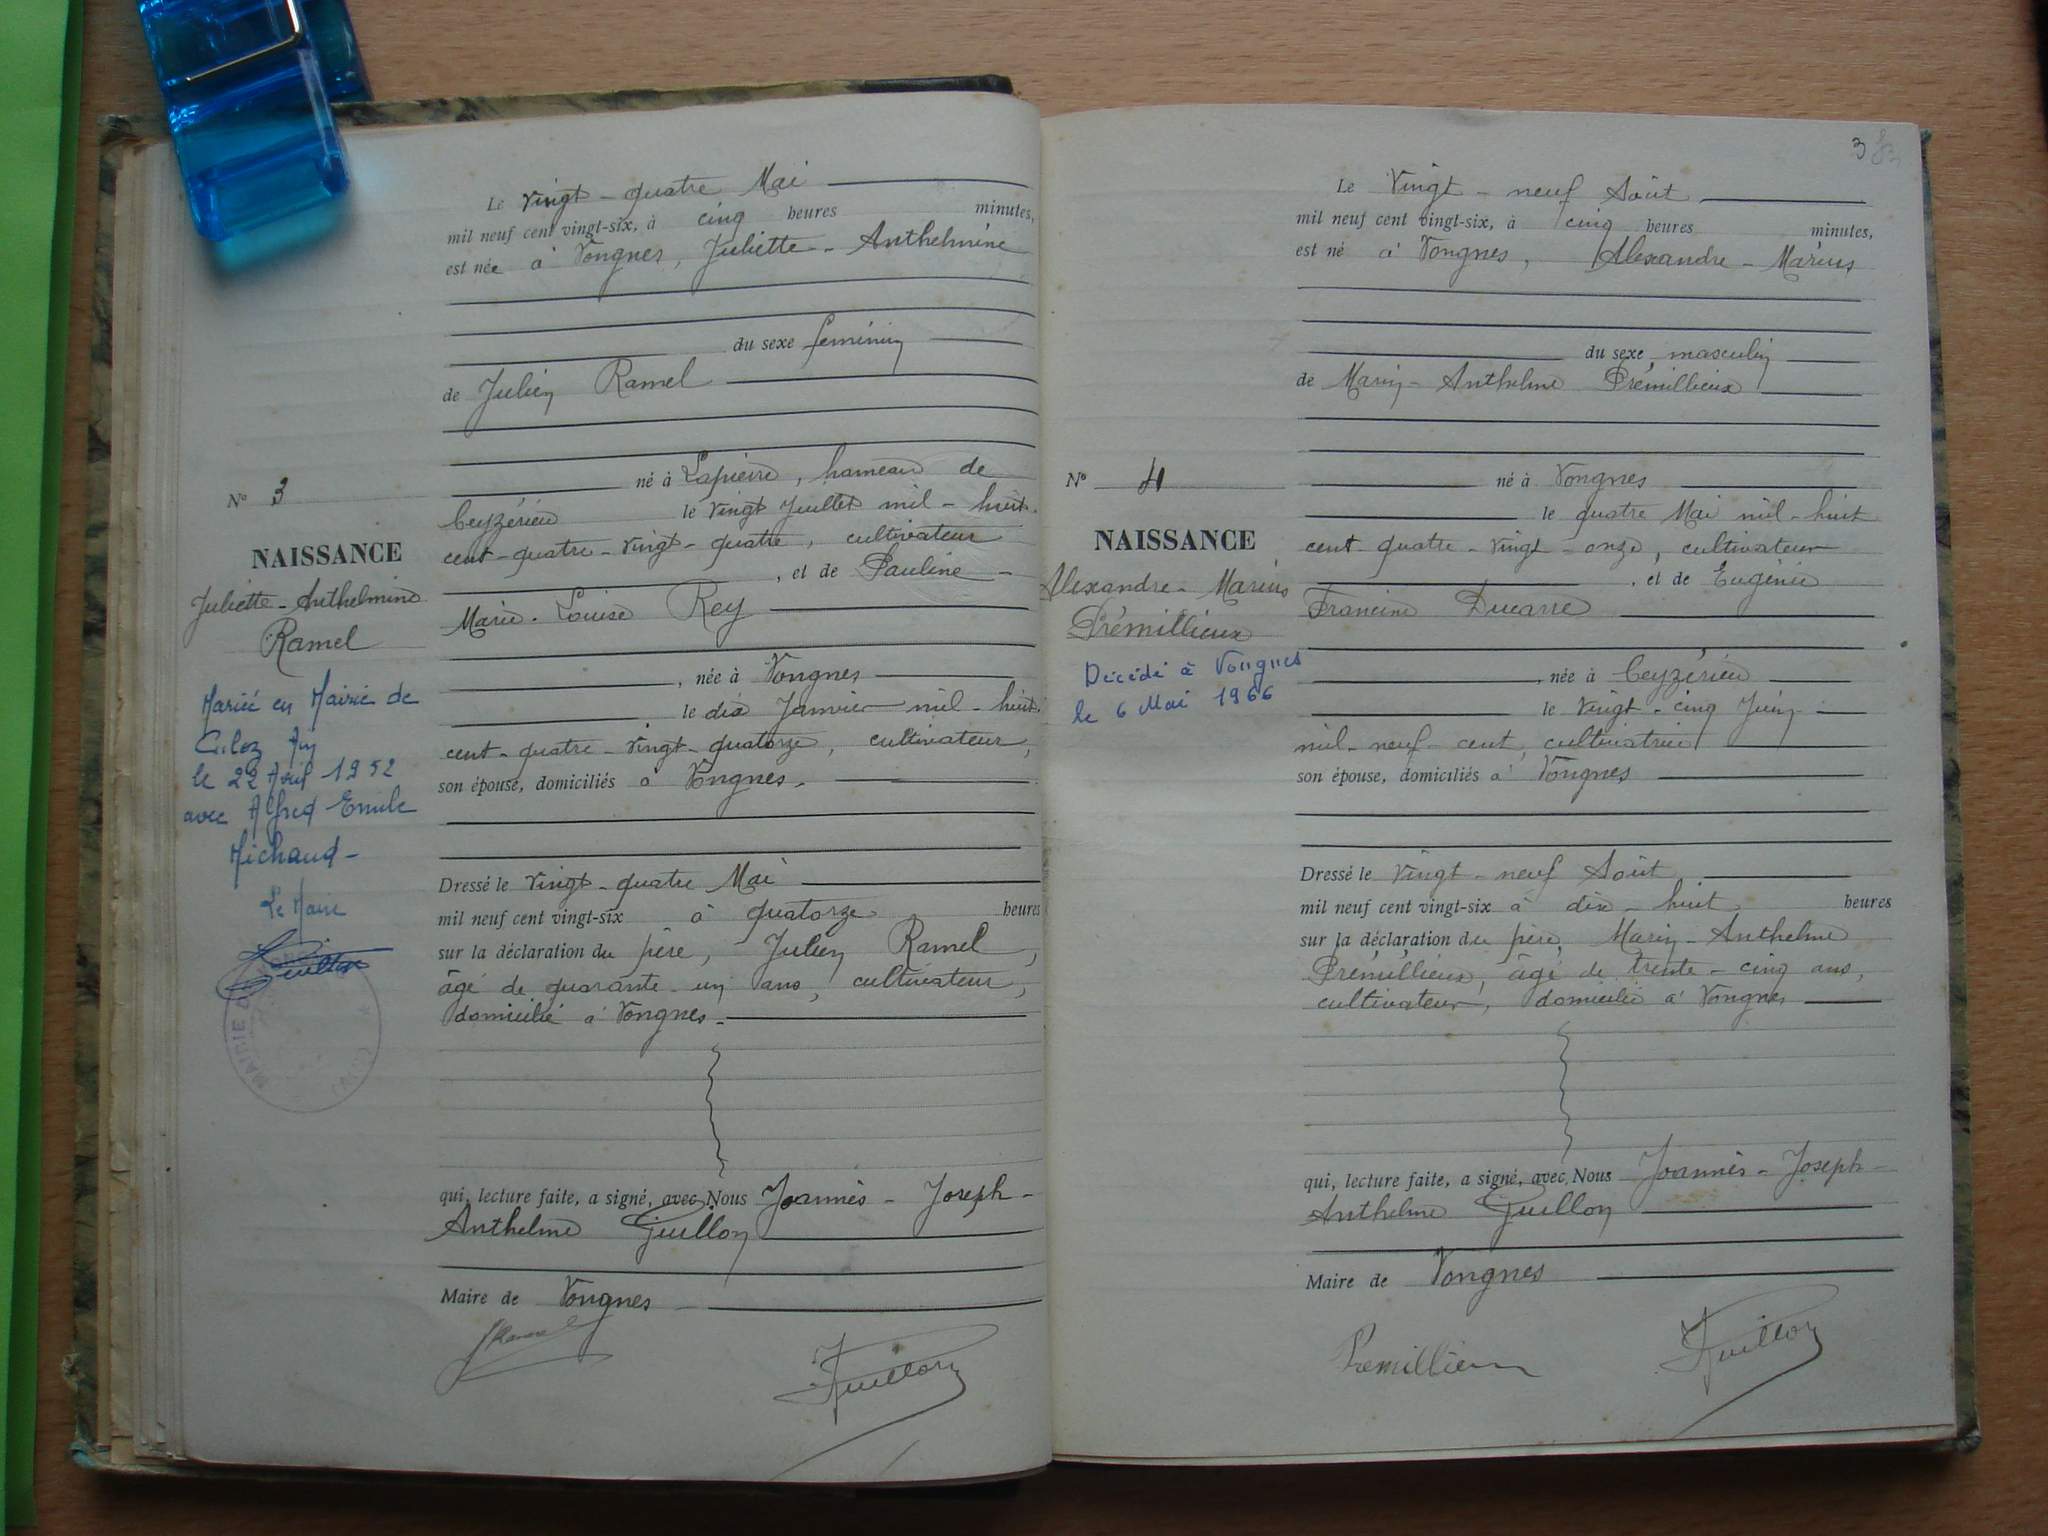 Le vingt-quatre Mai
mil neuf cent vingt-six, à cinq heures minutes,
est née à Vongnes, Juliette-Anthelmine
du sexe féminin
de Julien Ramel
né à Lapierre, hameau de
Ceyzérieu le vingt Juillet mil-huit-
cent-quatre-vingt-quatre, cultivateur
, et de Pauline-
Marie-Louise Rey
, née à Vongnes
le dix Janvier mil-huit-
cent-quatre-vingt-quatorze, cultivateur,
son épouse, domiciliés à Vongnes.
Dressé le vingt-quatre Mai
mil neuf cent vingt-six à quatorze heures
sur la déclaration du père, Julien Ramel,
âgé de quarante-un ans, cultivateur,
domicilié à Vongnes.
qui, lecture faite, a signé, avec Nous Joannès-Joseph-
Anthelme Guillon
Maire de Vongnes
JRamel
JGuillon
N° 3
NAISSANCE
Juliette-Anthelmine
Ramel
Marié en Mairie de
Culoz Ain
le 22 Avril 1952
avec Alfred Emile
Michaud-
Le Maire
MAIRIE D
(AIN)
3
Le vingt-neuf Août
mil neuf cent vingt-six, à cinq heures minutes,
est né à Vongnes, Alexandre-Marius
du sexe masculin
de Marin-Anthelme Prémillieux
né à Vongnes
le quatre Mai mil-huit
cent-quatre-vingt-onze, cultivateur
, et de Eugénie
Francine Ducarre
, née à Ceyzérieu
le vingt-cinq Juin
mil-neuf-cent, cultivatrice
son épouse, domiciliés à Vongnes
Dressé le vingt-neuf Août
mil neuf cent vingt-six à dix-huit heures
sur la déclaration du père, Marin-Anthelme
Prémillieux, âgé de trente-cinq ans,
cultivateur, domicilié à Vongnes
qui, lecture faite, a signé, avec Nous Joannès-Joseph-
Anthelme Guillon
Maire de Vongnes
Premillieux
JGuillon
N° 4
NAISSANCE
Alexandre-Marius
Prémillieux
Décédé à Vongnes
le 6 Mai 1966